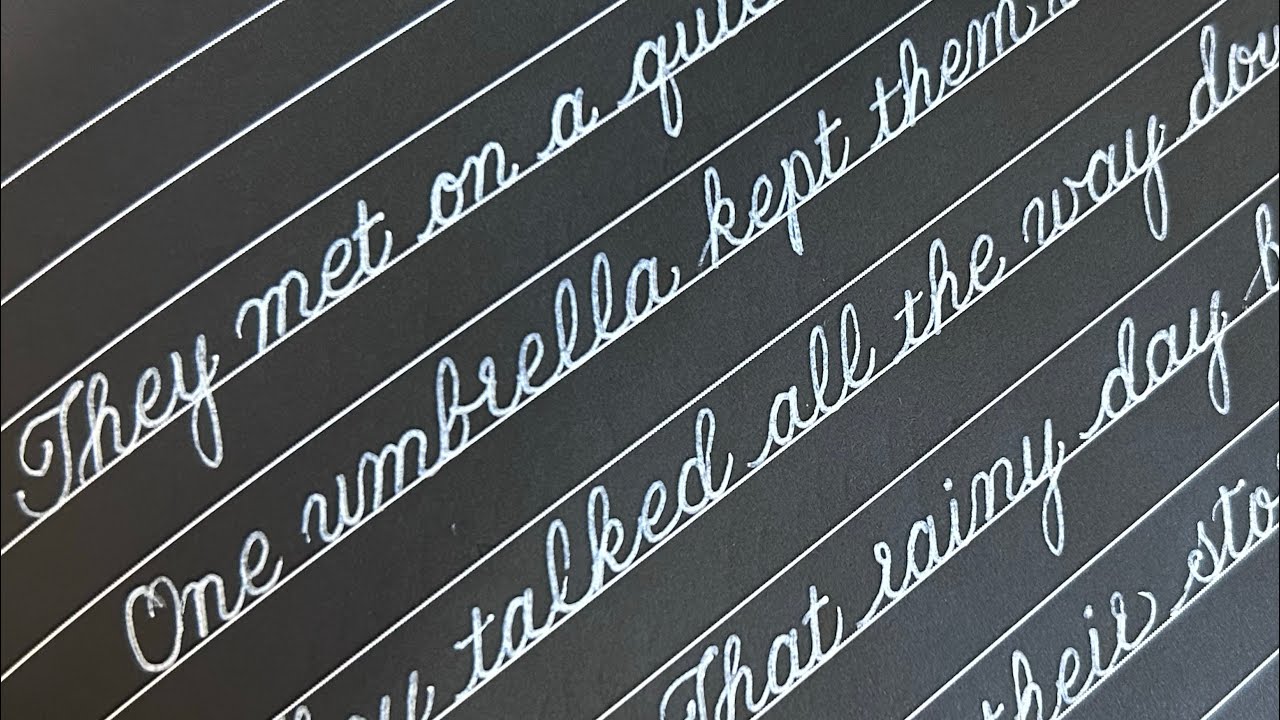 They met on a
One umbrella kept them
talked all the way
That rainy day
their